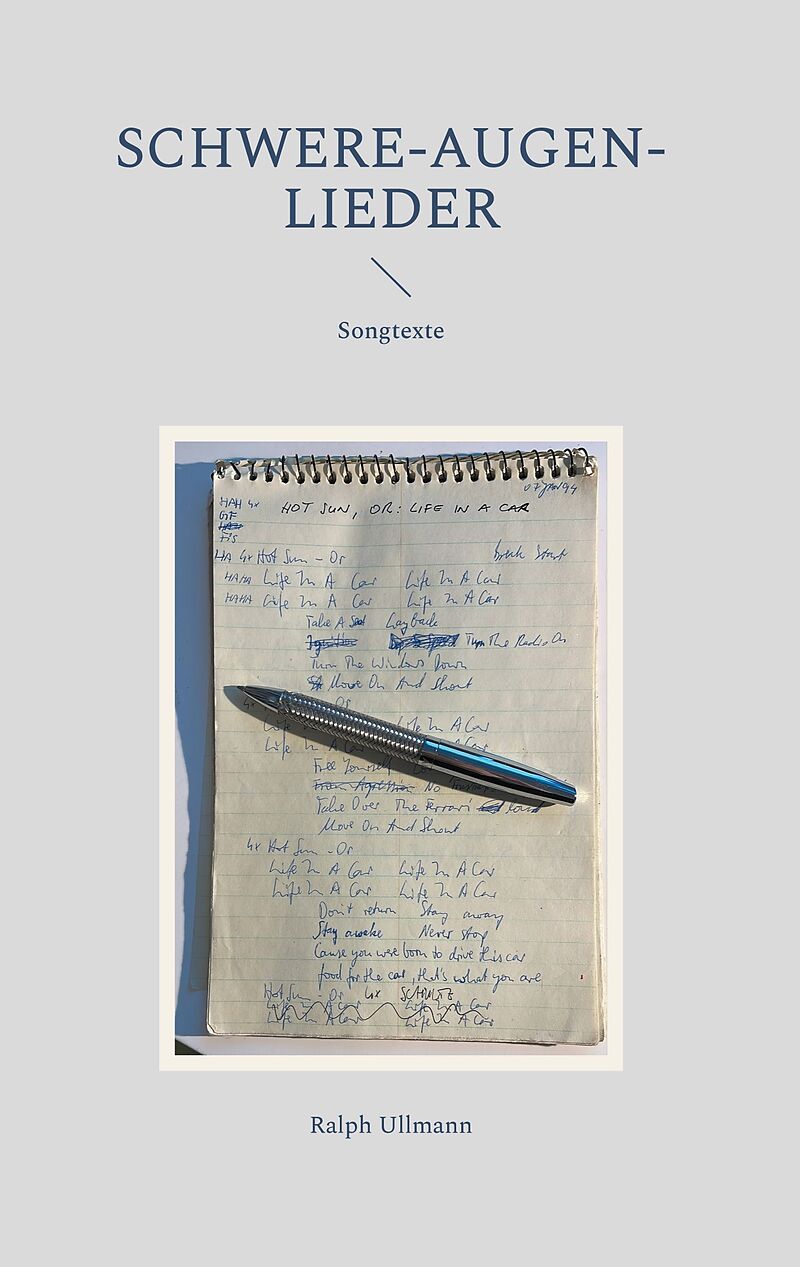 SCHWERE-AUGEN-
LIEDER
Songtexte
HAH 4x HOT SUN, OR: LIFE IN A CAR
HA 4x Hot Sun - Or break Start
HAHA Life In A Car Life In A Car
HAHA Life In A Car Life In A Car
Take A Seat Lay back
Ignition Turn The Radio On
Turn The Windows Down
Move On And Shout
4x Or
Life In Life In A Car
Life In A Car
Free Yourself
No
Take Over The Ferrari loud
Move On And Shout
4x Hot Sun - Or
Life In A Car Life In A Car
Life In A Car Life In A Car
Don't return Stay away
Stay awake Never stop
Cause you were born to drive this car
food for the car, that's what you are
Hot Sun - Or 4x
Life In A Car Life In A Car
Life In A Car Life In A Car
Ralph Ullmann